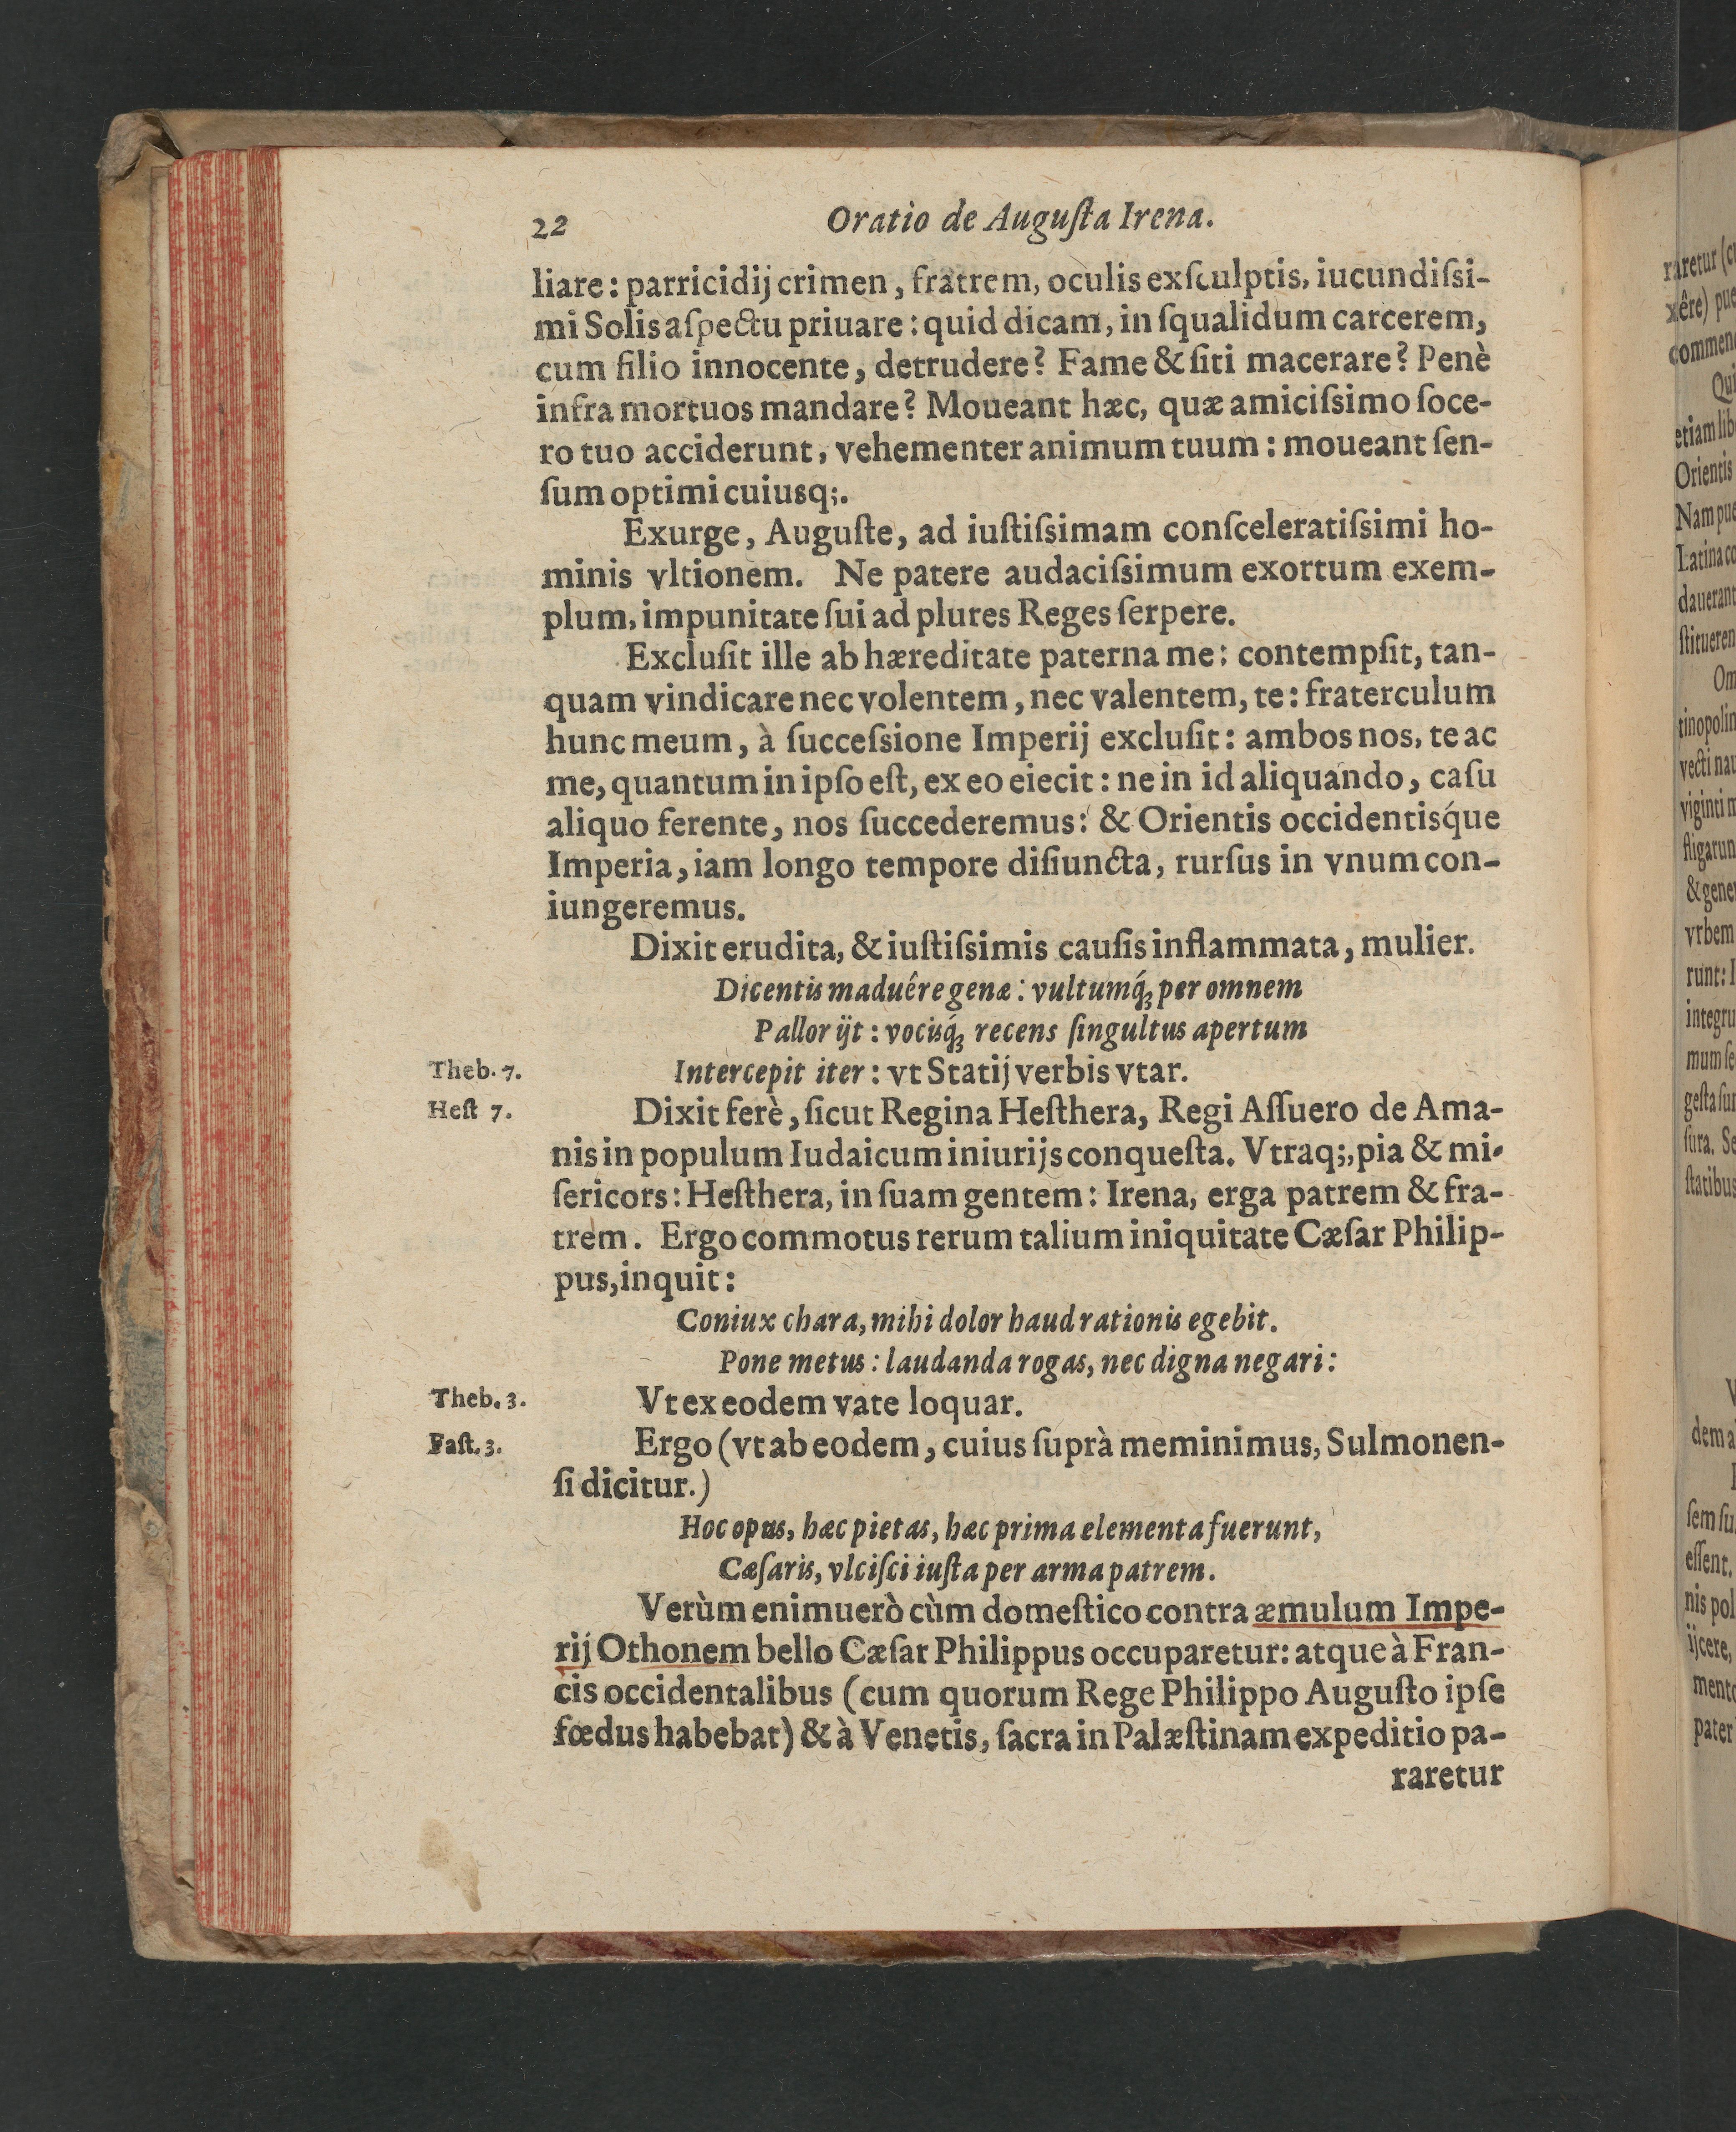 22 Oratio de Auguſta Irena.
liare: parricidij crimen, fratrem, oculis exſculptis, iucundiſsi-
mi Solis aſpectu priuare: quid dicam, in ſqualidum carcerem,
cum filio innocente, detrudere? Fame & ſiti macerare? Penè
infra mortuos mandare? Moueant hæc, quæ amiciſsimo ſoce-
ro tuo acciderunt, vehementer animum tuum: moueant ſen-
ſum optimi cuiusq;.
Exurge, Auguſte, ad iuſtiſsimam conſceleratiſsimi ho-
minis vltionem. Ne patere audaciſsimum exortum exem-
plum, impunitate ſui ad plures Reges ſerpere.
Excluſit ille ab hæreditate paterna me: contempſit, tan-
quam vindicare nec volentem, nec valentem, te: fraterculum
hunc meum, à ſucceſsione Imperij excluſit: ambos nos, te ac
me, quantum in ipſo eſt, ex eo eiecit: ne in id aliquando, caſu
aliquo ferente, nos ſuccederemus: & Orientis occidentisq́ue
Imperia, iam longo tempore diſiuncta, rurſus in vnum con-
iungeremus.
Dixit erudita, & iuſtiſsimis cauſis inflammata, mulier.
Dicentis maduêre genæ: vultumq́ꝫ per omnem
Pallor ijt: vocisq́ꝫ recens ſingultus apertum
Theb. 7. Intercepit iter: vt Statij verbis vtar.
Heſt 7. Dixit ferè, ſicut Regina Heſthera, Regi Aſſuero de Ama-
nis in populum Iudaicum iniurijs conqueſta. Vtraq;, pia & mi-
ſericors: Heſthera, in ſuam gentem: Irena, erga patrem & fra-
trem. Ergo commotus rerum talium iniquitate Cæſar Philip-
pus, inquit:
Coniux chara, mihi dolor haud rationis egebit.
Pone metus: laudanda rogas, nec digna negari:
Theb. 3. Vt ex eodem vate loquar.
Faſt. 3. Ergo (vt ab eodem, cuius ſuprà meminimus, Sulmonen-
ſi dicitur.)
Hoc opus, hæc pietas, hæc prima elementa fuerunt,
Cæſaris, vlciſci iuſta per arma patrem.
Verùm enimuerò cùm domeſtico contra æmulum Impe-
rij Othonem bello Cæſar Philippus occuparetur: atque à Fran-
cis occidentalibus (cum quorum Rege Philippo Auguſto ipſe
fœdus habebat) & à Venetis, ſacra in Palæſtinam expeditio pa-
raretur